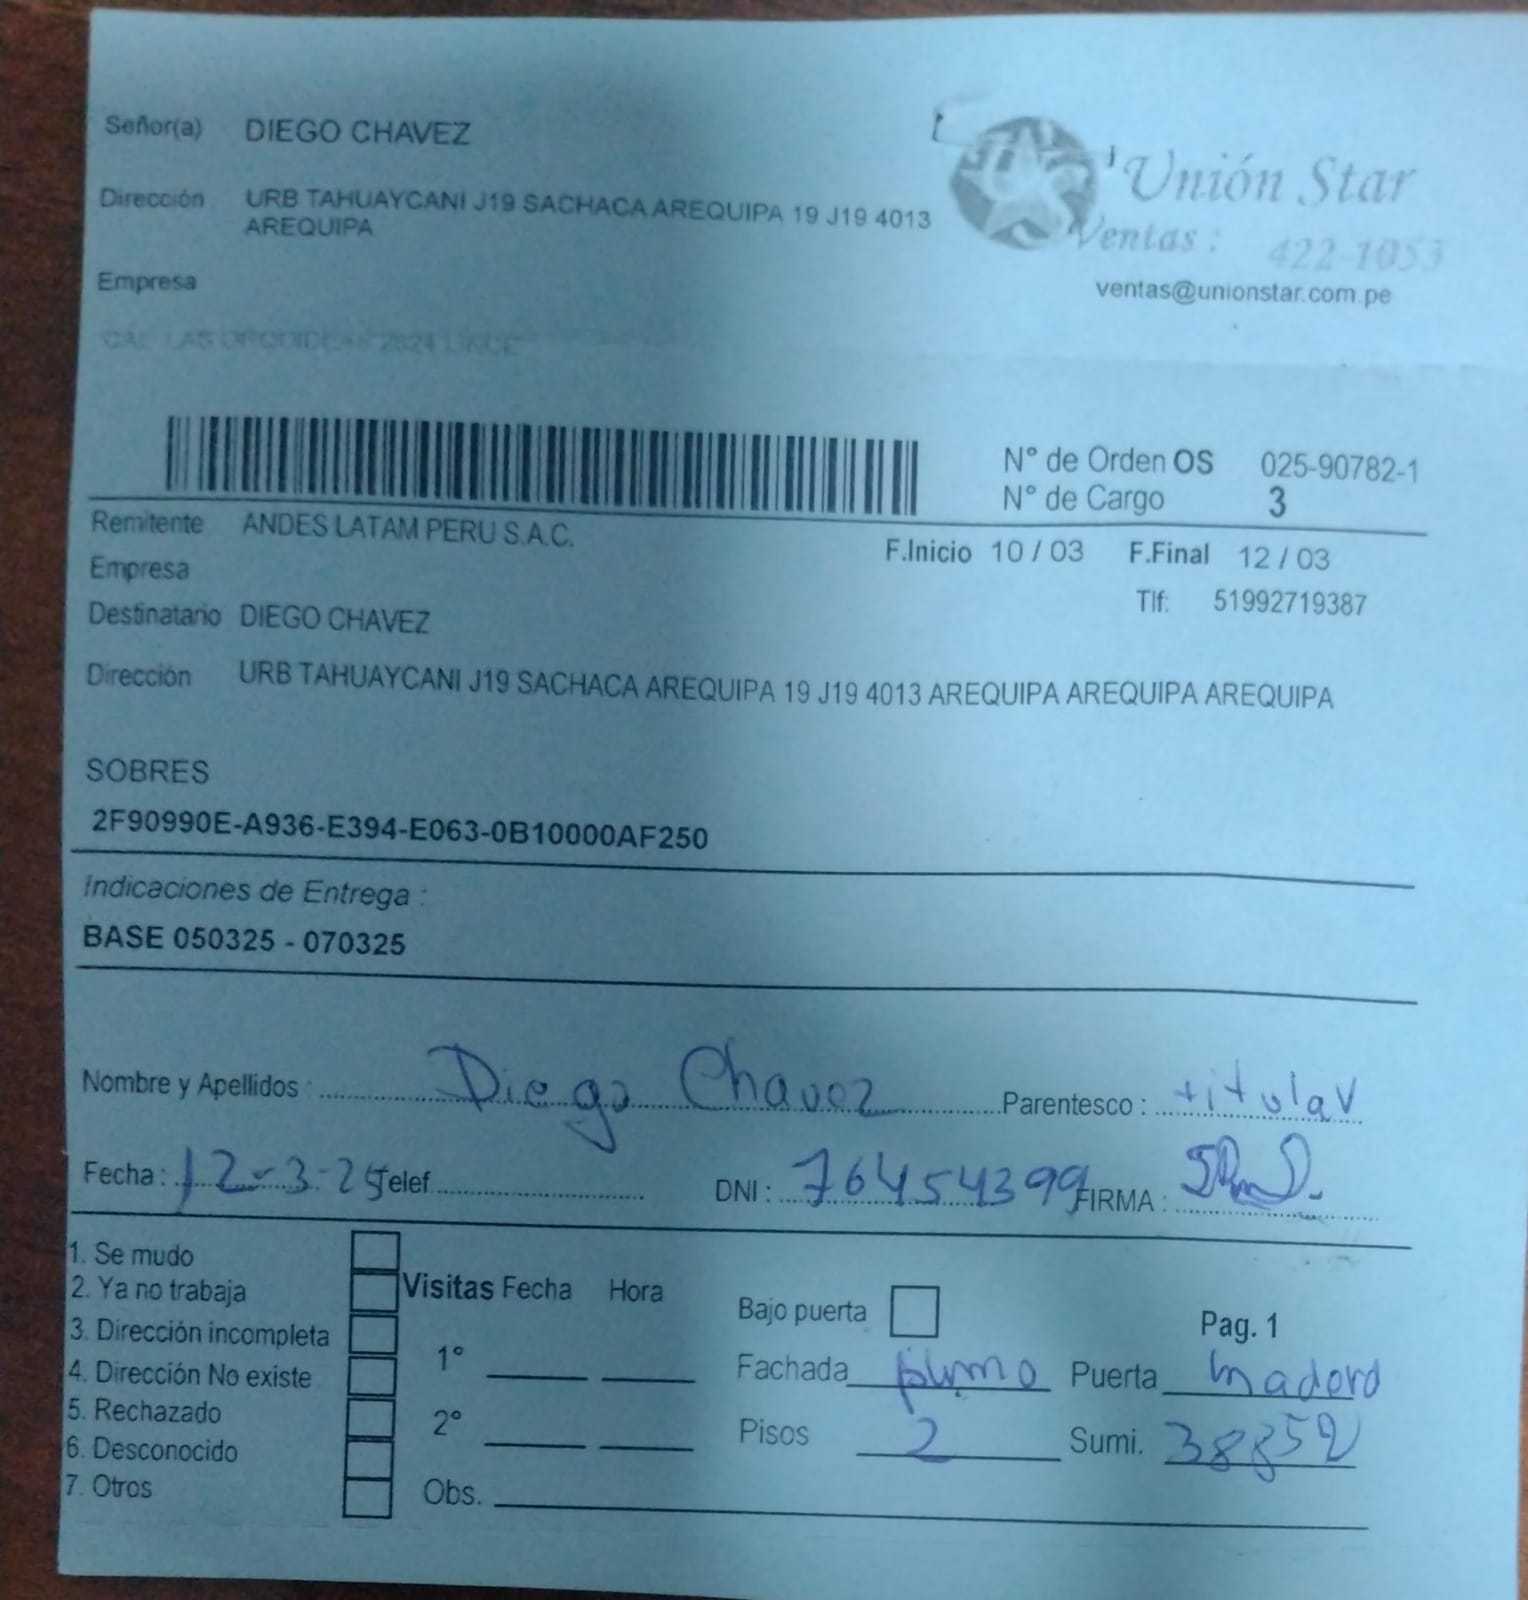 Señor(a) DIEGO CHAVEZ
Dirección URB TAHUAYCANI J19 SACHACA AREQUIPA 19 J19 4013
AREQUIPA
Unión Star
Ventas : 422-1053
ventas@unionstar.com.pe
Empresa
CAL LAS ORQUIDEAS 2624 LINCE
N° de Orden OS 025-90782-1
N° de Cargo 3
Remitente ANDES LATAM PERU S.A.C.
F.Inicio 10 / 03 F.Final 12 / 03
Empresa
Tlf: 51992719387
Destinatario DIEGO CHAVEZ
Dirección URB TAHUAYCANI J19 SACHACA AREQUIPA 19 J19 4013 AREQUIPA AREQUIPA AREQUIPA
SOBRES
2F90990E-A936-E394-E063-0B10000AF250
Indicaciones de Entrega :
BASE 050325 - 070325
Nombre y Apellidos : Diego Chavez Parentesco : titular
Fecha : 12-3-25 Telef. DNI : 76454399 FIRMA :
1. Se mudo
2. Ya no trabaja
3. Dirección incompleta
4. Dirección No existe
5. Rechazado
6. Desconocido
7. Otros
Visitas Fecha Hora
1°
2°
Obs.
Bajo puerta
Pag. 1
Fachada plomo Puerta madera
Pisos 2 Sumi. 38852